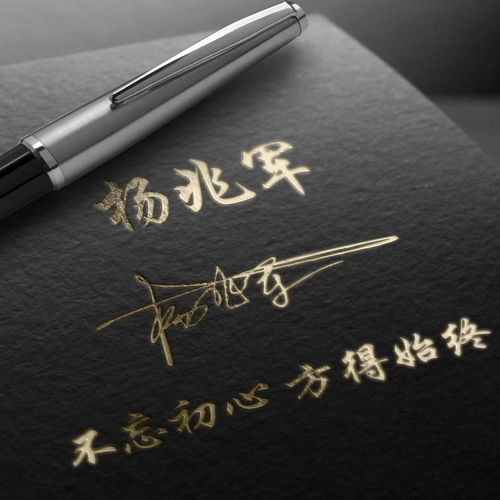 杨兆军
杨兆军
不忘初心 方得始终